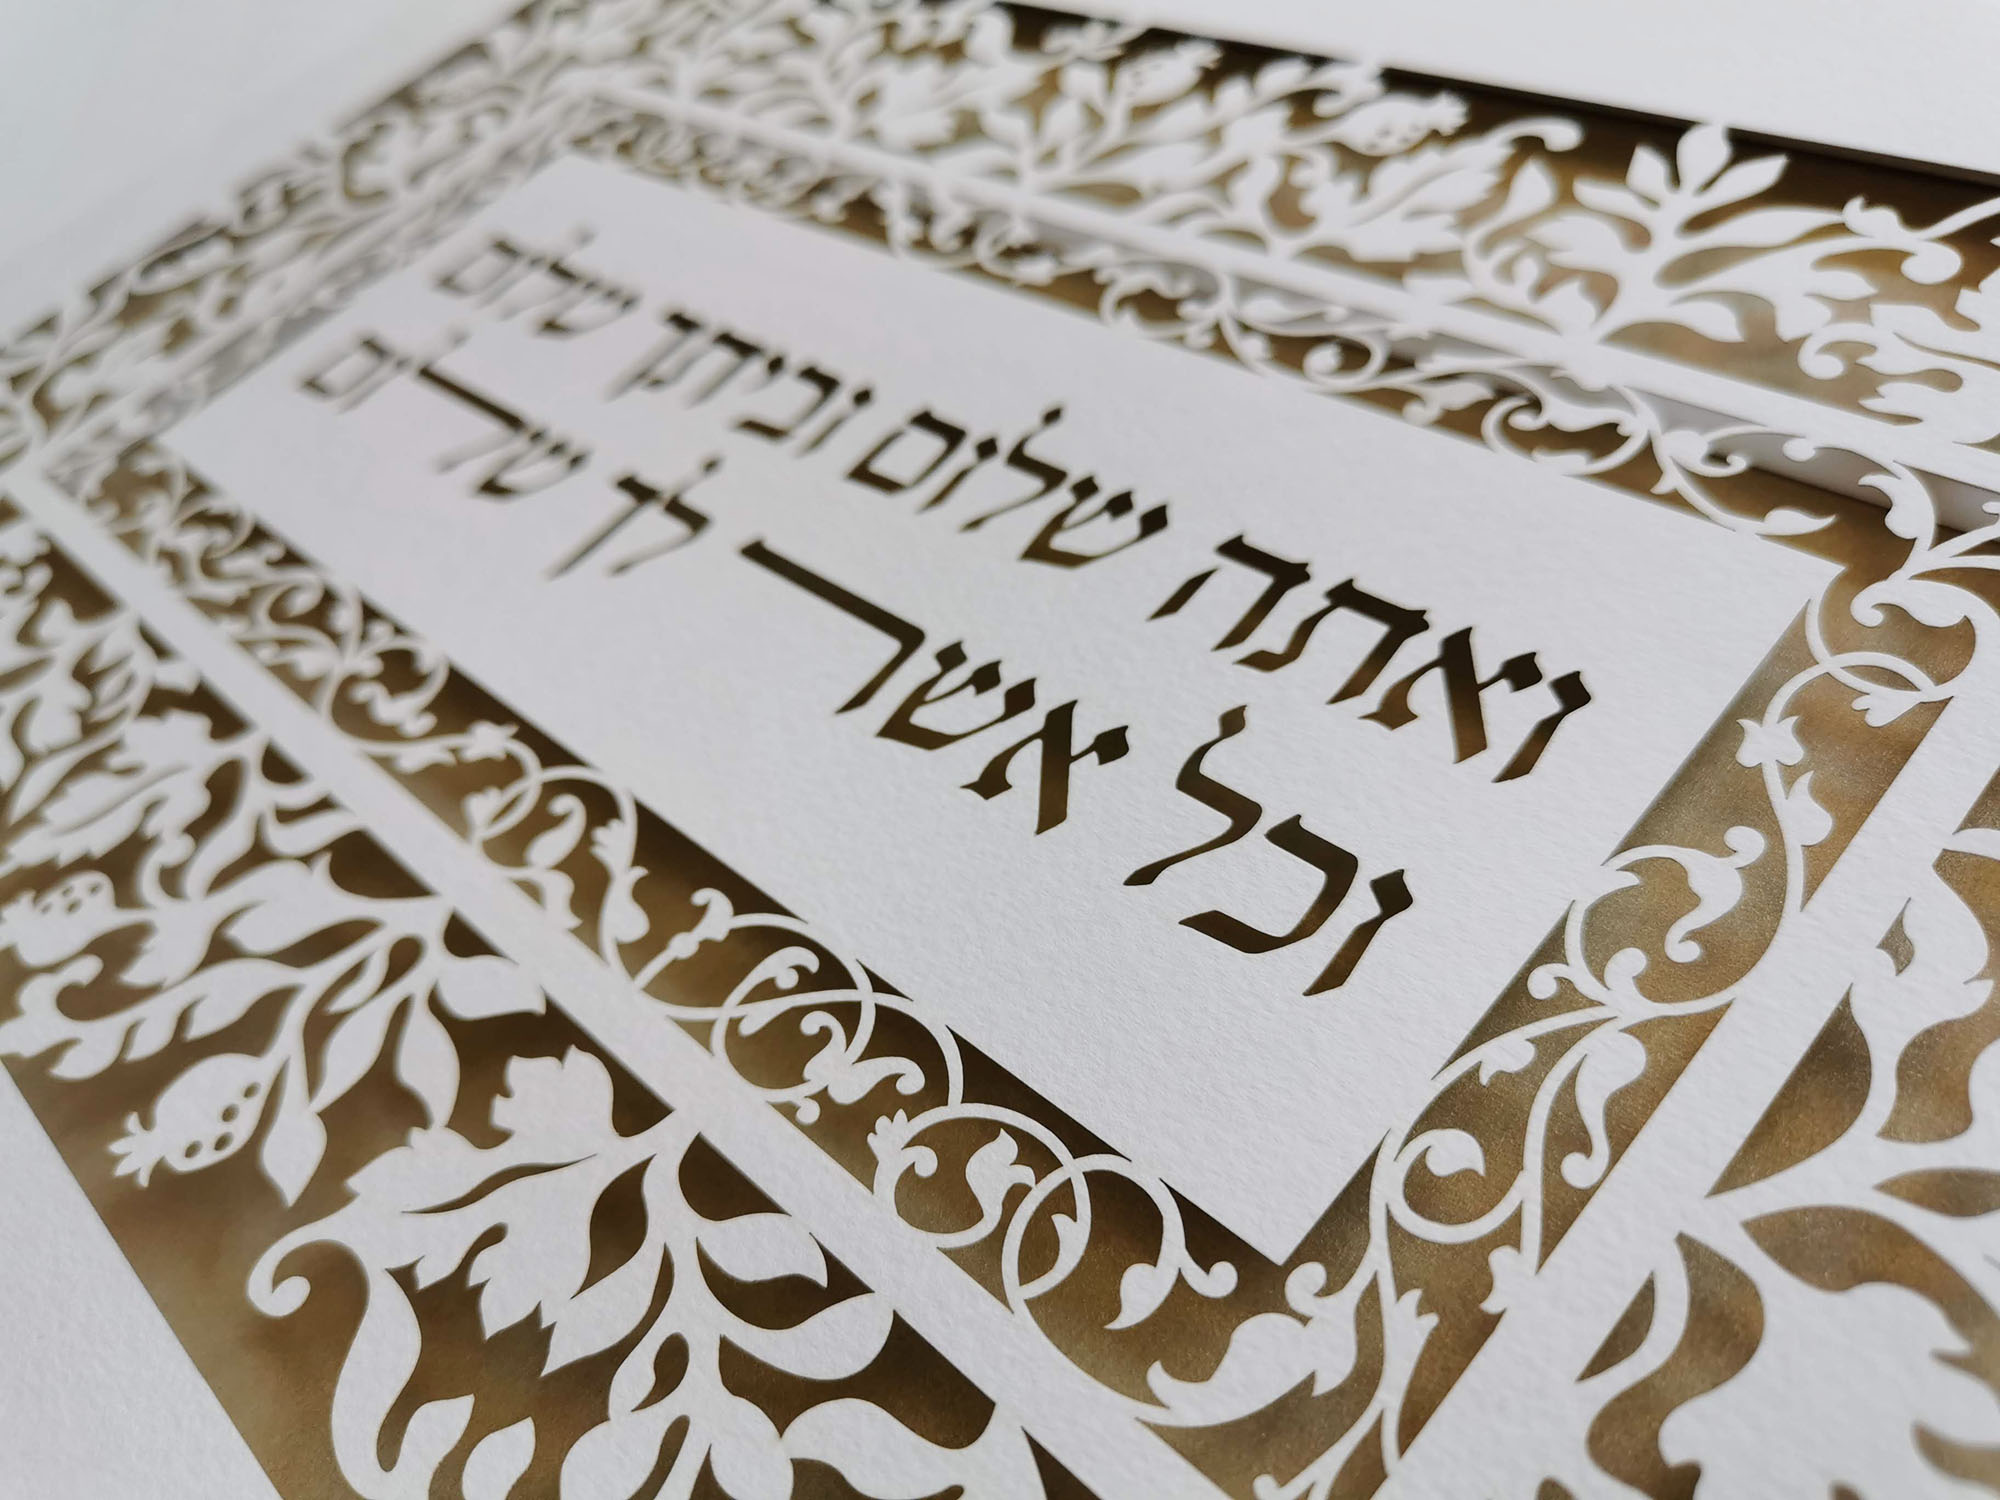 ואתה שלום וביתך שלום
וכל אשר לך שלום